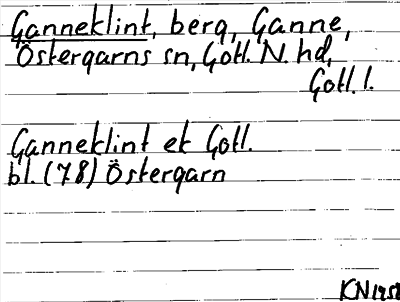 Ganneklint, berg, Ganne,
Östergarns sn, Gotl. N. hd,
Gotl. l.
Ganneklint ek Gotl.
bl. (78) Östergarn
KN